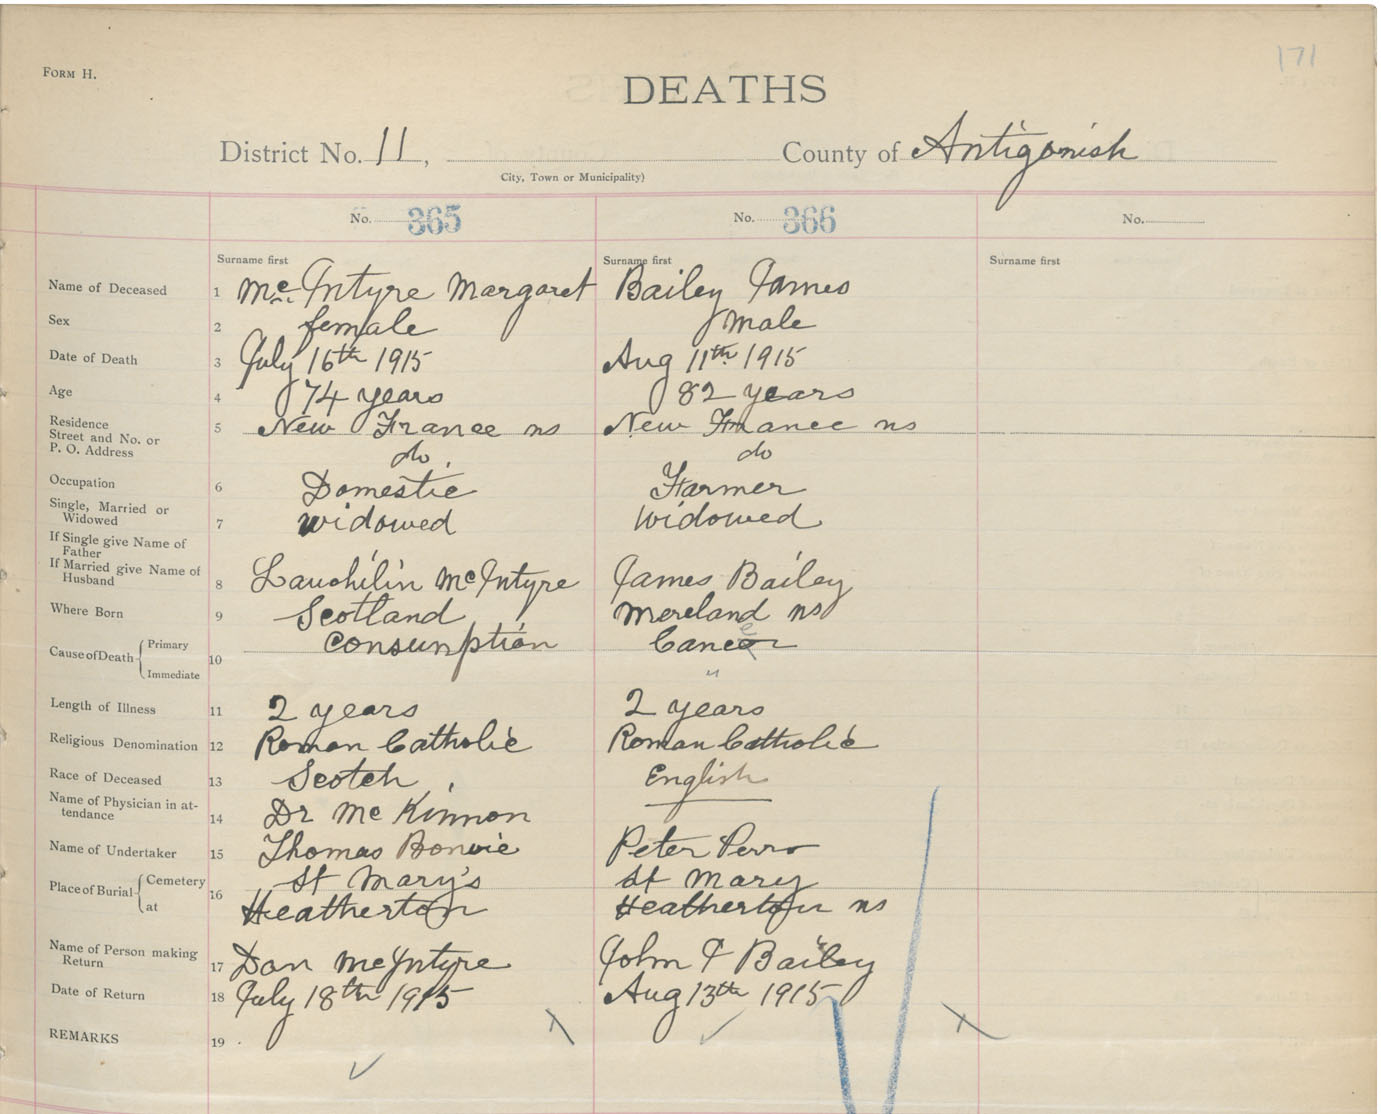 171
FORM H.
DEATHS
District No. 11, County of Antigonish
City, Town or Municipality)
No. 365 No. 366 No.
Surname first Surname first Surname first
Name of Deceased 1 McIntyre Margaret Bailey James
Sex 2 female male
Date of Death 3 July 16th 1915 Aug 11th 1915
Age 4 74 years 82 years
Residence
Street and No. or 5 New France ns New France ns
P. O. Address do do
Occupation 6 Domestic Farmer
Single, Married or
Widowed 7 widowed widowed
If Single give Name of
Father
If Married give Name of
Husband 8 Lauchilin McIntyre James Bailey
Where Born 9 Scotland Mereland ns
Cause of Death Primary 10 Consumption Cancer
Immediate "
Length of Illness 11 2 years 2 years
Religious Denomination 12 Roman Catholic Roman Catholic
Race of Deceased 13 Scotch English
Name of Physician in at-
tendance 14 Dr McKinnon
Name of Undertaker 15 Thomas Bonvie Peter Perro
Place of Burial Cemetery 16 St Mary's St Mary
at Heatherton Heatherton ns
Name of Person making
Return 17 Dan McIntyre John F Bailey
Date of Return 18 July 18th 1915 Aug 13th 1915
REMARKS 19